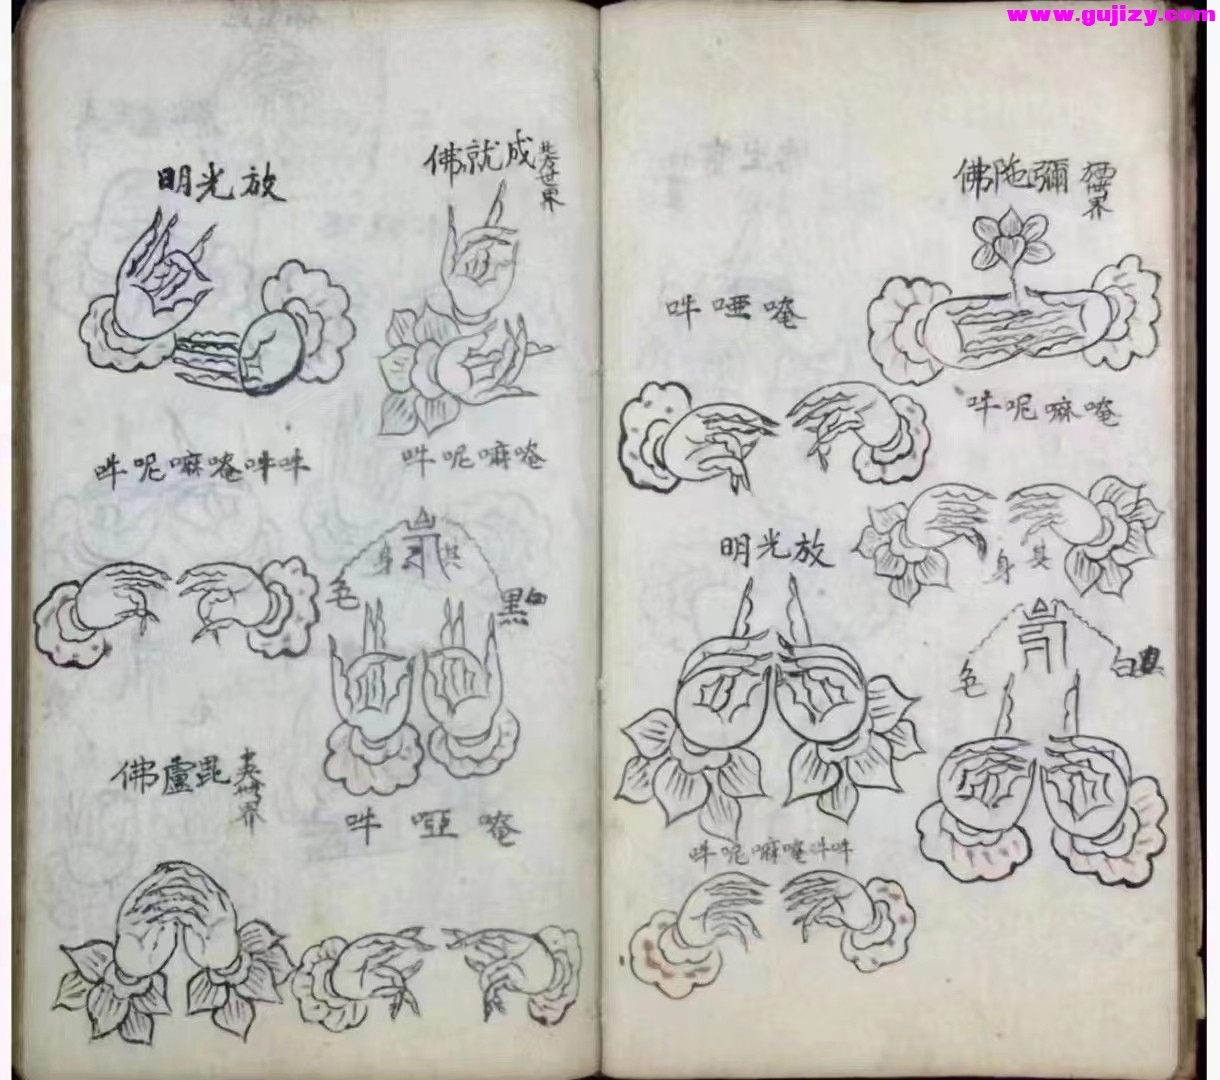 www.gujizy.com
世界
彌陁佛
唵嘛呢吽
其身
白色
唵啞吽
放光明
吽吽唵嘛呢吽
世界
成就佛
唵嘛呢吽
其身
黑色
唵啞吽
放光明
吽吽唵嘛呢吽
世界
毘盧佛